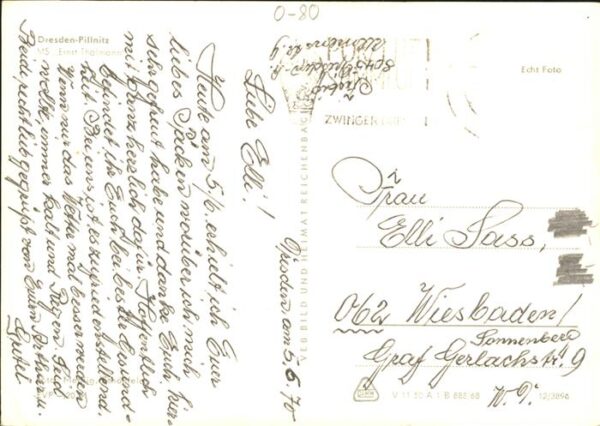 0-80
Dresden-Pillnitz
MS „Ernst Thälmann"
Echt Foto
ZWINGER
VEB BILD UND HEIMAT REICHENBACH
Dresden, am 5. 6. 70
Liebe Elli!
Heute am 5/6. erhielt ich Euer
liebes Päckchen worüber ich mich
sehr gefreut habe und danke Euch hier-
mit ganz herzlich dafür. Hoffentlich
befindet ihr Euch bei bester Gesund-
heit. Bei uns ist es zufriedenstellend.
Wenn nur das Wetter mal besser werden
wollte, immer kalt und Regen. Seid
Beide recht lieb gegrüßt von Eurem Arthur u.
Frau
Elli Sass,
062 Wiesbaden/
Sonnenberg
Graf Gerlachstr. 9
W. D.
V 11 50 A 1 B 882 68
12/389a